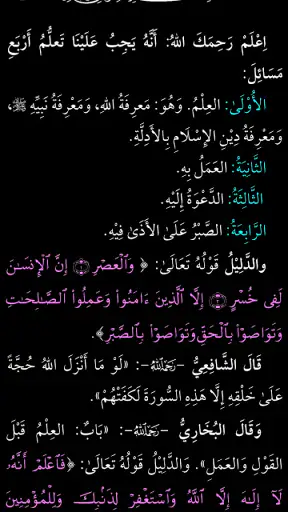 اِعْلَمْ رَحِمَكَ اللهُ: أَنَّهُ يَجِبُ عَلَيْنَا تَعلُّمُ أَرْبَعِ
مَسَائِلَ:
الأُوْلَىٰ: العِلْمُ. وَهُوَ: مَعرِفَةُ اللهِ، وَمَعْرِفَةُ نَبِيِّهِ ﷺ،
وَمَعْرِفَةُ دِيْنِ الإِسْلَامِ بِالأَدِلَّةِ.
الثَّانِيَةُ: العَمَلُ بِهِ.
الثَّالِثَةُ: الدَّعْوَةُ إِلَيْهِ.
الرَّابِعَةُ: الصَّبْرُ عَلَىٰ الأَذَىٰ فِيْهِ.
والدَّلِيْلُ قَوْلُهُ تَعَالَىٰ: ﴿ وَٱلْعَصْرِ ۝١ إِنَّ ٱلْإِنسَٰنَ
لَفِى خُسْرٍ ۝٢ إِلَّا ٱلَّذِينَ ءَامَنُوا۟ وَعَمِلُوا۟ ٱلصَّٰلِحَٰتِ
وَتَوَاصَوْا۟ بِٱلْحَقِّ وَتَوَاصَوْا۟ بِٱلصَّبْرِ ﴾.
قَالَ الشَّافِعِيُّ –رَحِمَهُ اللهُ–: «لَوْ مَا أَنْزَلَ اللهُ حُجَّةً
عَلَىٰ خَلْقِهِ إِلَّا هَذِهِ السُّورَةَ لَكَفَتْهُمْ».
وَقَالَ البُخَارِيُّ –رَحِمَهُ اللهُ–: «بَابٌ: العِلْمُ قَبْلَ
القَوْلِ وَالعَمَلِ». وَالدَّلِيْلُ قَوْلُهُ تَعَالَىٰ: ﴿فَٱعْلَمْ أَنَّهُۥ
لَآ إِلَٰهَ إِلَّا ٱللَّهُ وَٱسْتَغْفِرْ لِذَنۢبِكَ وَلِلْمُؤْمِنِينَ